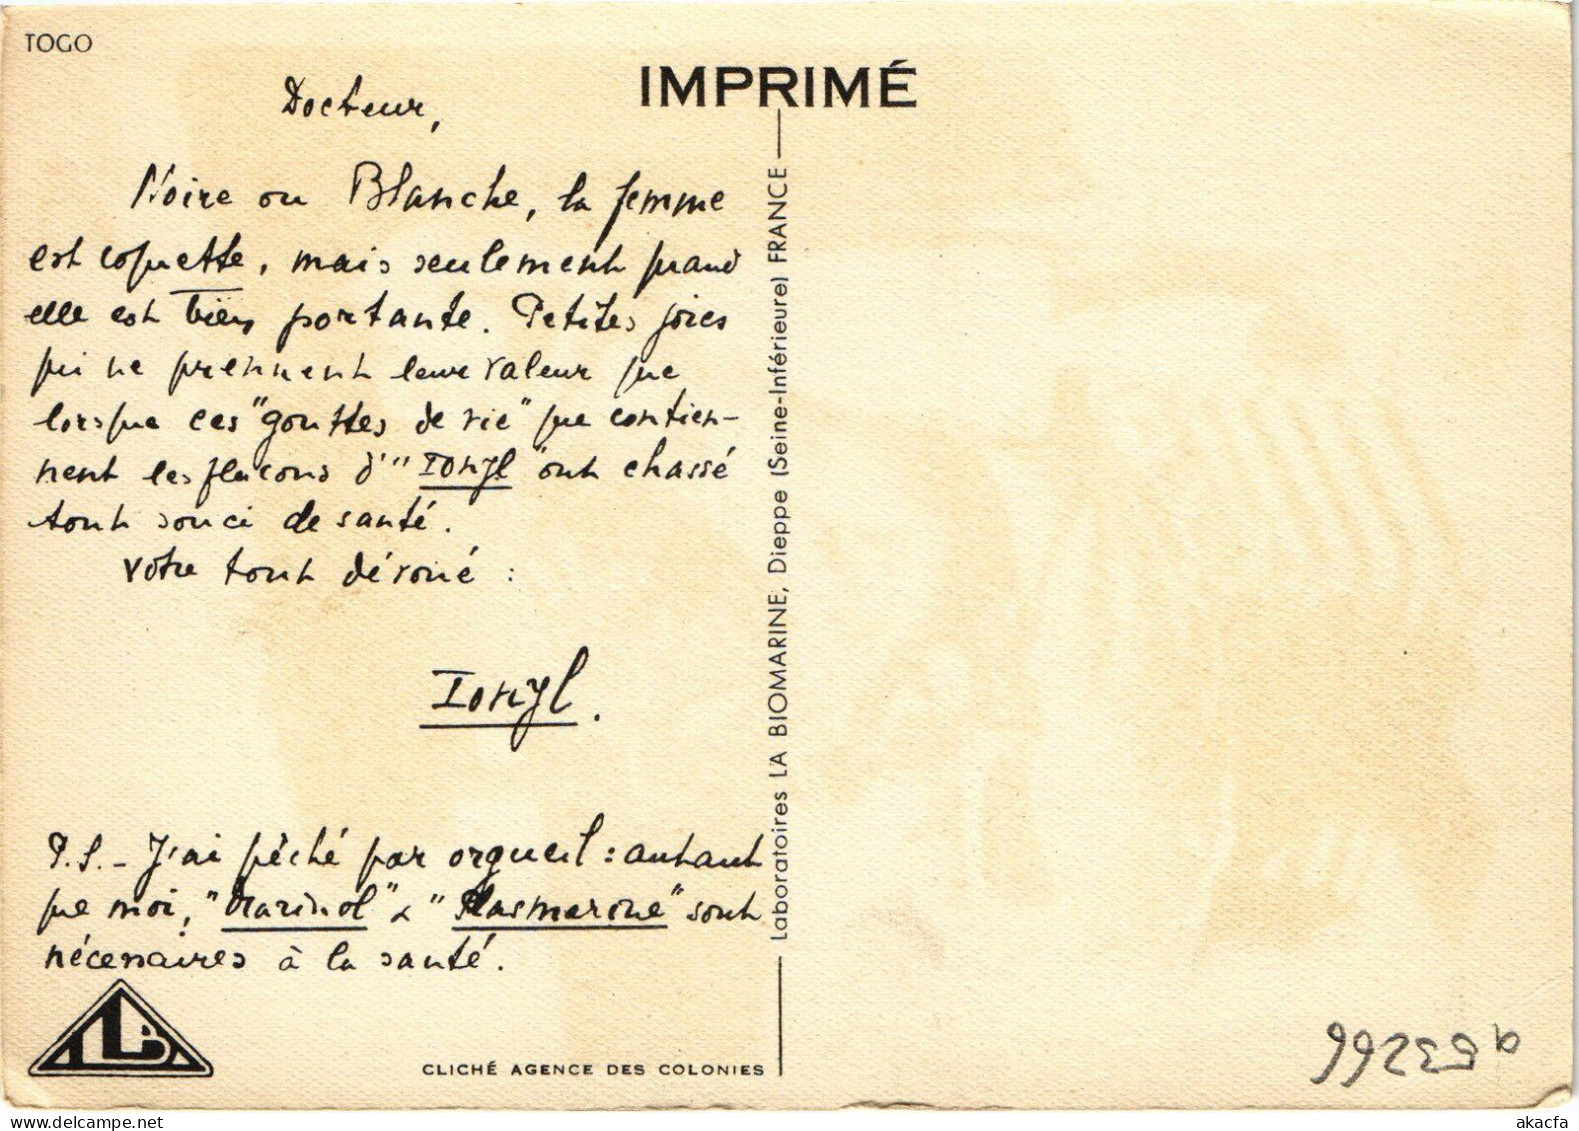 TOGO
IMPRIMÉ
Docteur,
Noire ou Blanche, la femme
est coquette, mais seulement quand
elle est bien portante. Petites joies
qui ne prennent leur valeur que
lorsque ces "gouttes de vie" que contien-
nent les flacons d'"Ionyl" ont chassé
tout souci de santé.
Votre tout dévoué :
Ionyl.
P.S. - J'ai pêché par orgueil : autant
que moi, "Marinol" & "Plasmarine" sont
nécessaires à la santé.
LB
CLICHÉ AGENCE DES COLONIES
Laboratoires LA BIOMARINE, Dieppe (Seine-Inférieure) FRANCE
a 53266
akacfa